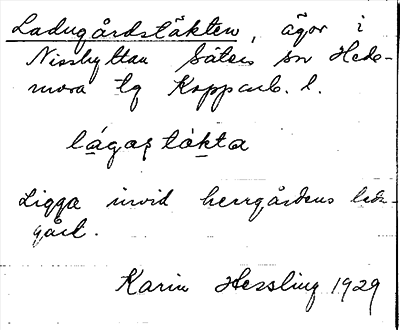 Ladugårdstäkten, ägor i
Nisshyttan Säters sn Hede-
mora tg Kopparb. l.
lágaṣtàkta
Ligga invid herrgårdens lad-
gård.
Karin Hessling 1929